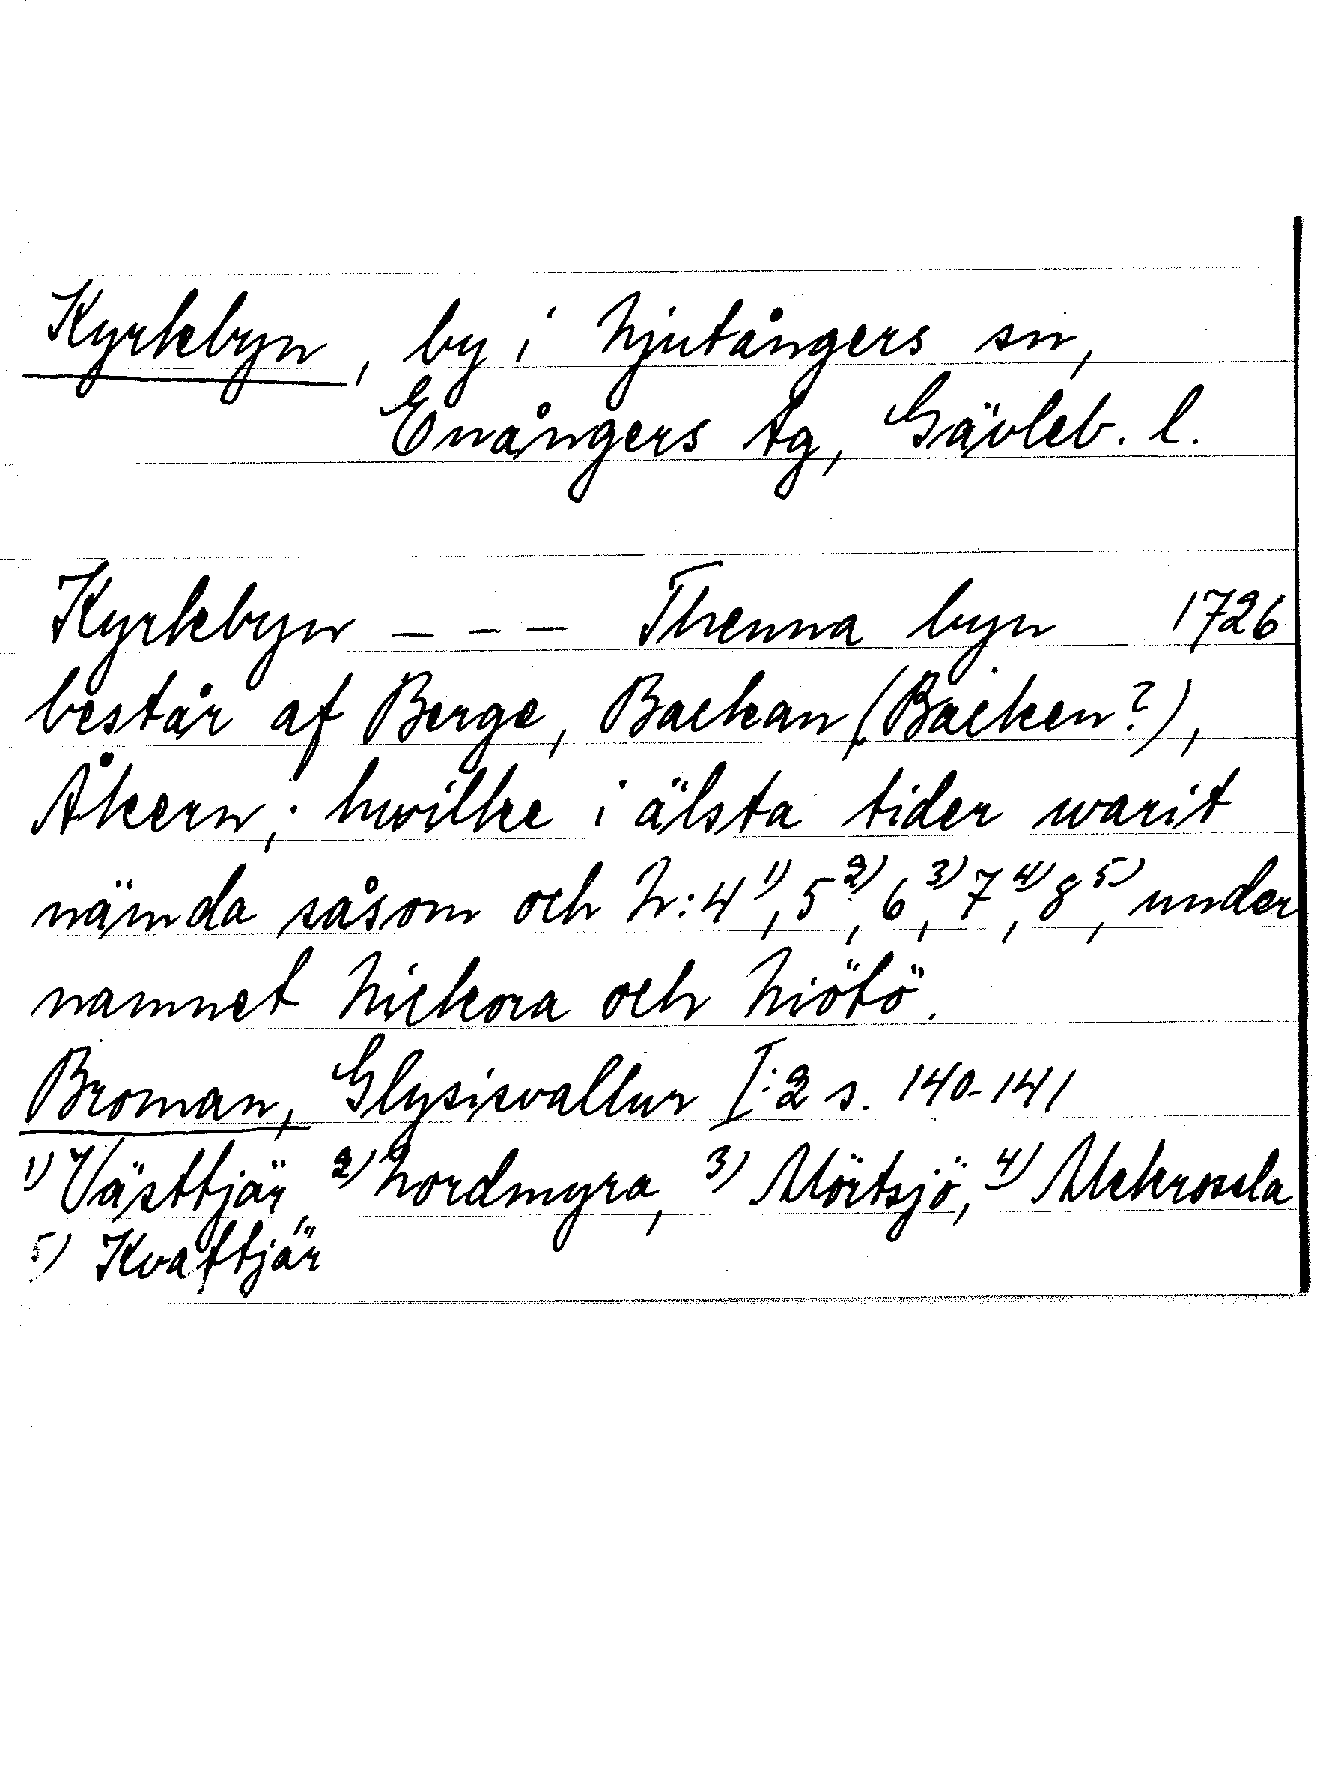 Kyrkbyn, by i Njutångers sn,
Enångers tg, Gävleb. l.
Kyrkbyn --- Thenna byn 1726
består af Berge, Backan (Backen?),
Åkern; hwilke i älsta tider warit
nämda såsom och N:4 1), 5 2), 6 3), 7 4), 8 5), under
namnet Nickora och Niötö.
Broman, Glysisvallur I:2 s. 140-141
1) Västtjär, 2) Nordmyra, 3) Mörtsjö, 4) Mckrossla
5) Kvattjär